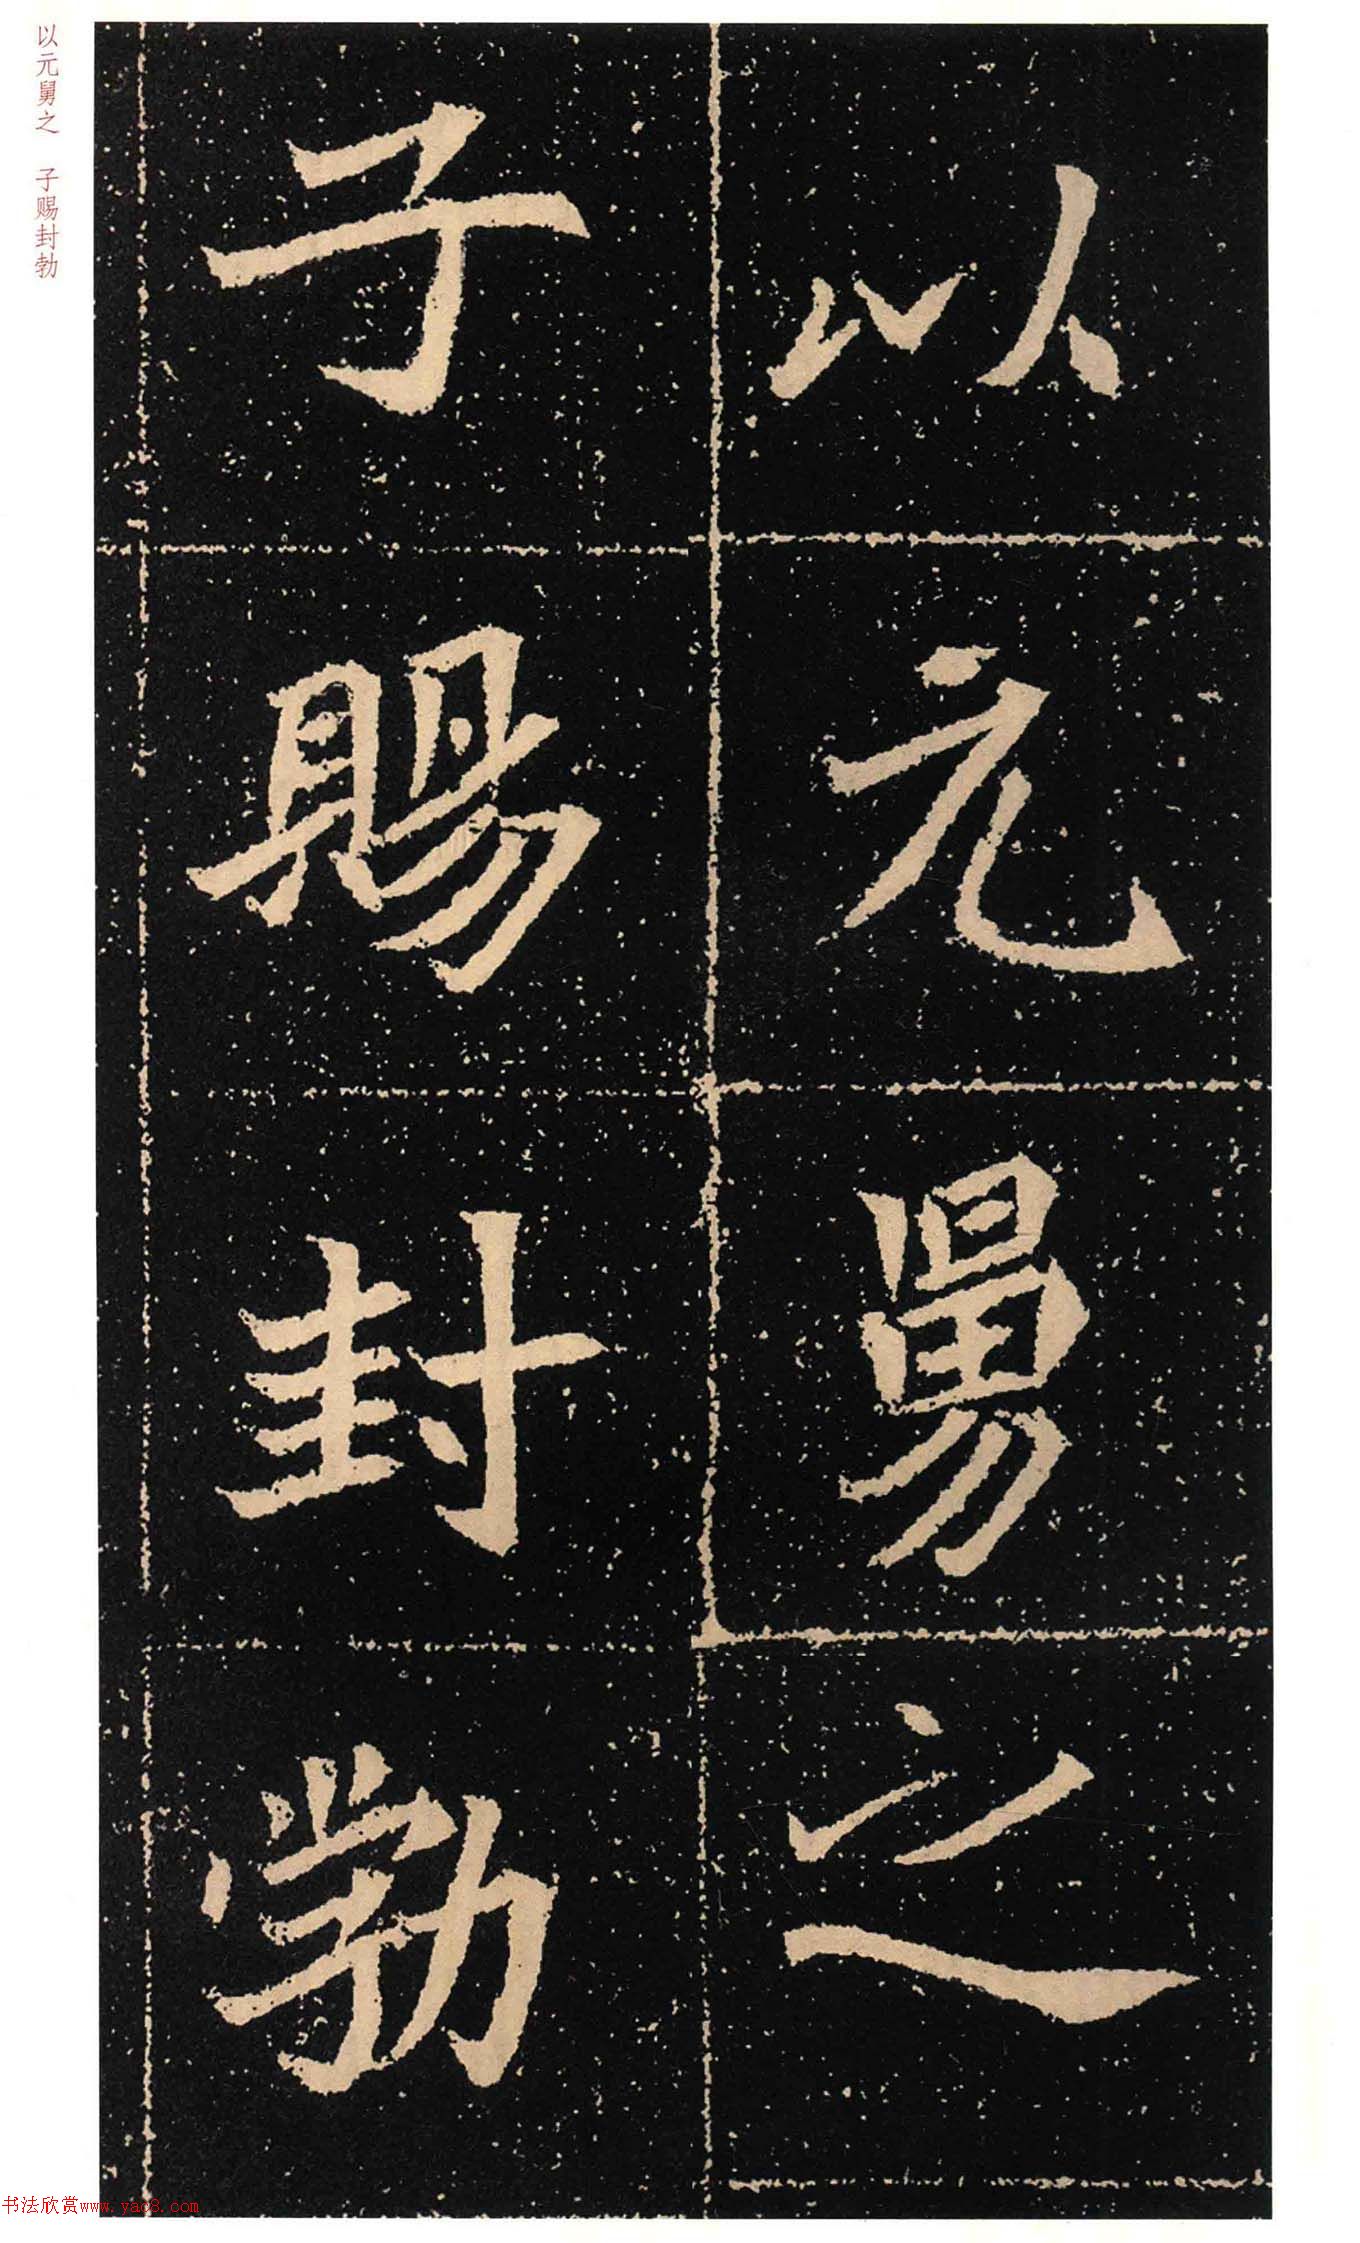 以元舅之
子賜封勃
以元舅之 子赐封勃
书法欣赏www.yac8.com